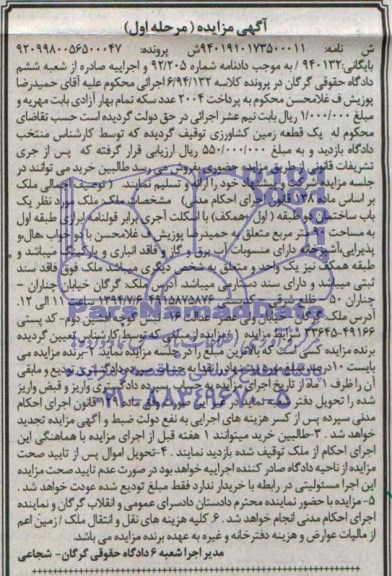 آگهی مزایده (مرحله اول)
ش نامه: ۹۴۰۱۹۱۰۱۷۳۵۰۰۰۱۱ ش پرونده: ۹۲۰۹۹۸۰۰۵۶۵۰۰۰۴۷
بایگانی: ۹۴۰۱۳۲ / به موجب دادنامه شماره ۹۲/۲۰۵ و اجراییه صادره از شعبه ششم
دادگاه حقوقی گرگان در پرونده کلاسه ۶/۹۴/۱۳۲ اجرائی محکوم علیه آقای حمیدرضا
پوزیش ف غلامحسن محکوم به پرداخت ۲۰۰۴ عدد سکه تمام بهار آزادی بابت مهریه و
مبلغ ۱/۰۰۰/۰۰۰ ریال بابت نیم عشر اجرائی در حق دولت گردیده است حسب تقاضای
محکوم له یک قطعه زمین کشاورزی توقیف گردیده که توسط کارشناس منتخب
دادگاه بازدید و به مبلغ ۵۵۰/۰۰۰/۰۰۰ ریال ارزیابی قرار گرفته که پس از جری
تشریفات قانونی از طریق مزایده حضوری بفروش می رسد طالبین خرید می توانند در
جلسه مزایده شرکت و پیشنهاد خود را ارائه و تسلیم نمایند. (توصیف اجمالی ملک
بر اساس ماده ۱۳۸ قانون اجرای احکام مدنی) مشخصات ملک: ملک مورد نظر یک
باب ساختمان دو طبقه (اول+همکف) با اسکلت آجری برابر قولنامه ابرازی طبقه اول
به مساحت ۹۰ متر مربع متعلق به حمیدرضا پوزیش ف غلامحسن با دو خواب هال و
پذیرایی، آشپزخانه دارای منصوبات آب برق و گاز و فاقد انباری و پارکینگ میباشد و
طبقه همکف نیز یک واحد و متعلق به شخص دیگری میباشد ملک فوق فاقد سند
ثبتی میباشد و دارای سند دستدارمی میباشد. آدرس ملک: گرگان خیابان چناران -
چناران ۵۰ - ضلع شرقی - کدپستی ۴۹۱۵۸۷۵۸۷۶ ۱۳۹۴/۷/۶ ساعت ۱۱ الی ۱۲.
آدرس ملک: کد پستی
۴۹۱۶۶-۳۳۶۴۵ شرایط مزایده ۱- مزایده از مبلغی که توسط کارشناس تعیین گردیده
برنده مزایده کسی است که بالاترین مبلغ را در جلسه مزایده نماید. ۲-برنده مزایده می
بایست ۱۰ درصد مبلغ مورد پیشنهاد را نقدا به حساب سپرده دادگستری تودیع و مابقی
آن را ظرف ۱ ماه از تاریخ اجرای مزایده به حساب سپرده دادگستری واریز و قبض واریز
شده را تحویل دفتر شعبه نماید در غیر این صورت وفق ماده ۱۲۹ قانون اجرای احکام
مدنی سپرده پس از کسر هزینه های اجرایی به نفع دولت ضبط و آگهی مزایده تجدید
خواهد شد. ۳-طالبین خرید میتوانند ۱ هفته قبل از اجرای مزایده با هماهنگی این
اجرای احکام از ملک توقیف شده بازدید نمایند. ۴-تحویل اموال پس از تایید صحت
مزایده از ناحیه دادگاه صادر کننده اجراییه خواهد بود در صورت عدم تایید صحت مزایده
این اجرا مسئولیتی در رابطه با خریدار ندارد فقط مبلغ تودیع شده عودت خواهد شد.
۵- مزایده با حضور نماینده محترم دادستان دادسرای عمومی و انقلاب گرگان و نماینده
اجرای احکام مدنی انجام خواهد شد. ۶. کلیه هزینه های نقل و انتقال ملک / زمین اعم
از مالیات عوارض و هزینه دفترخانه و غیره به عهده برنده مزایده می باشد.
مدیر اجرا شعبه ۶ دادگاه حقوقی گرگان- شجاعی
ParsNamadData
۰۲۱-۸۸۳۴۹۶۷۰-۵